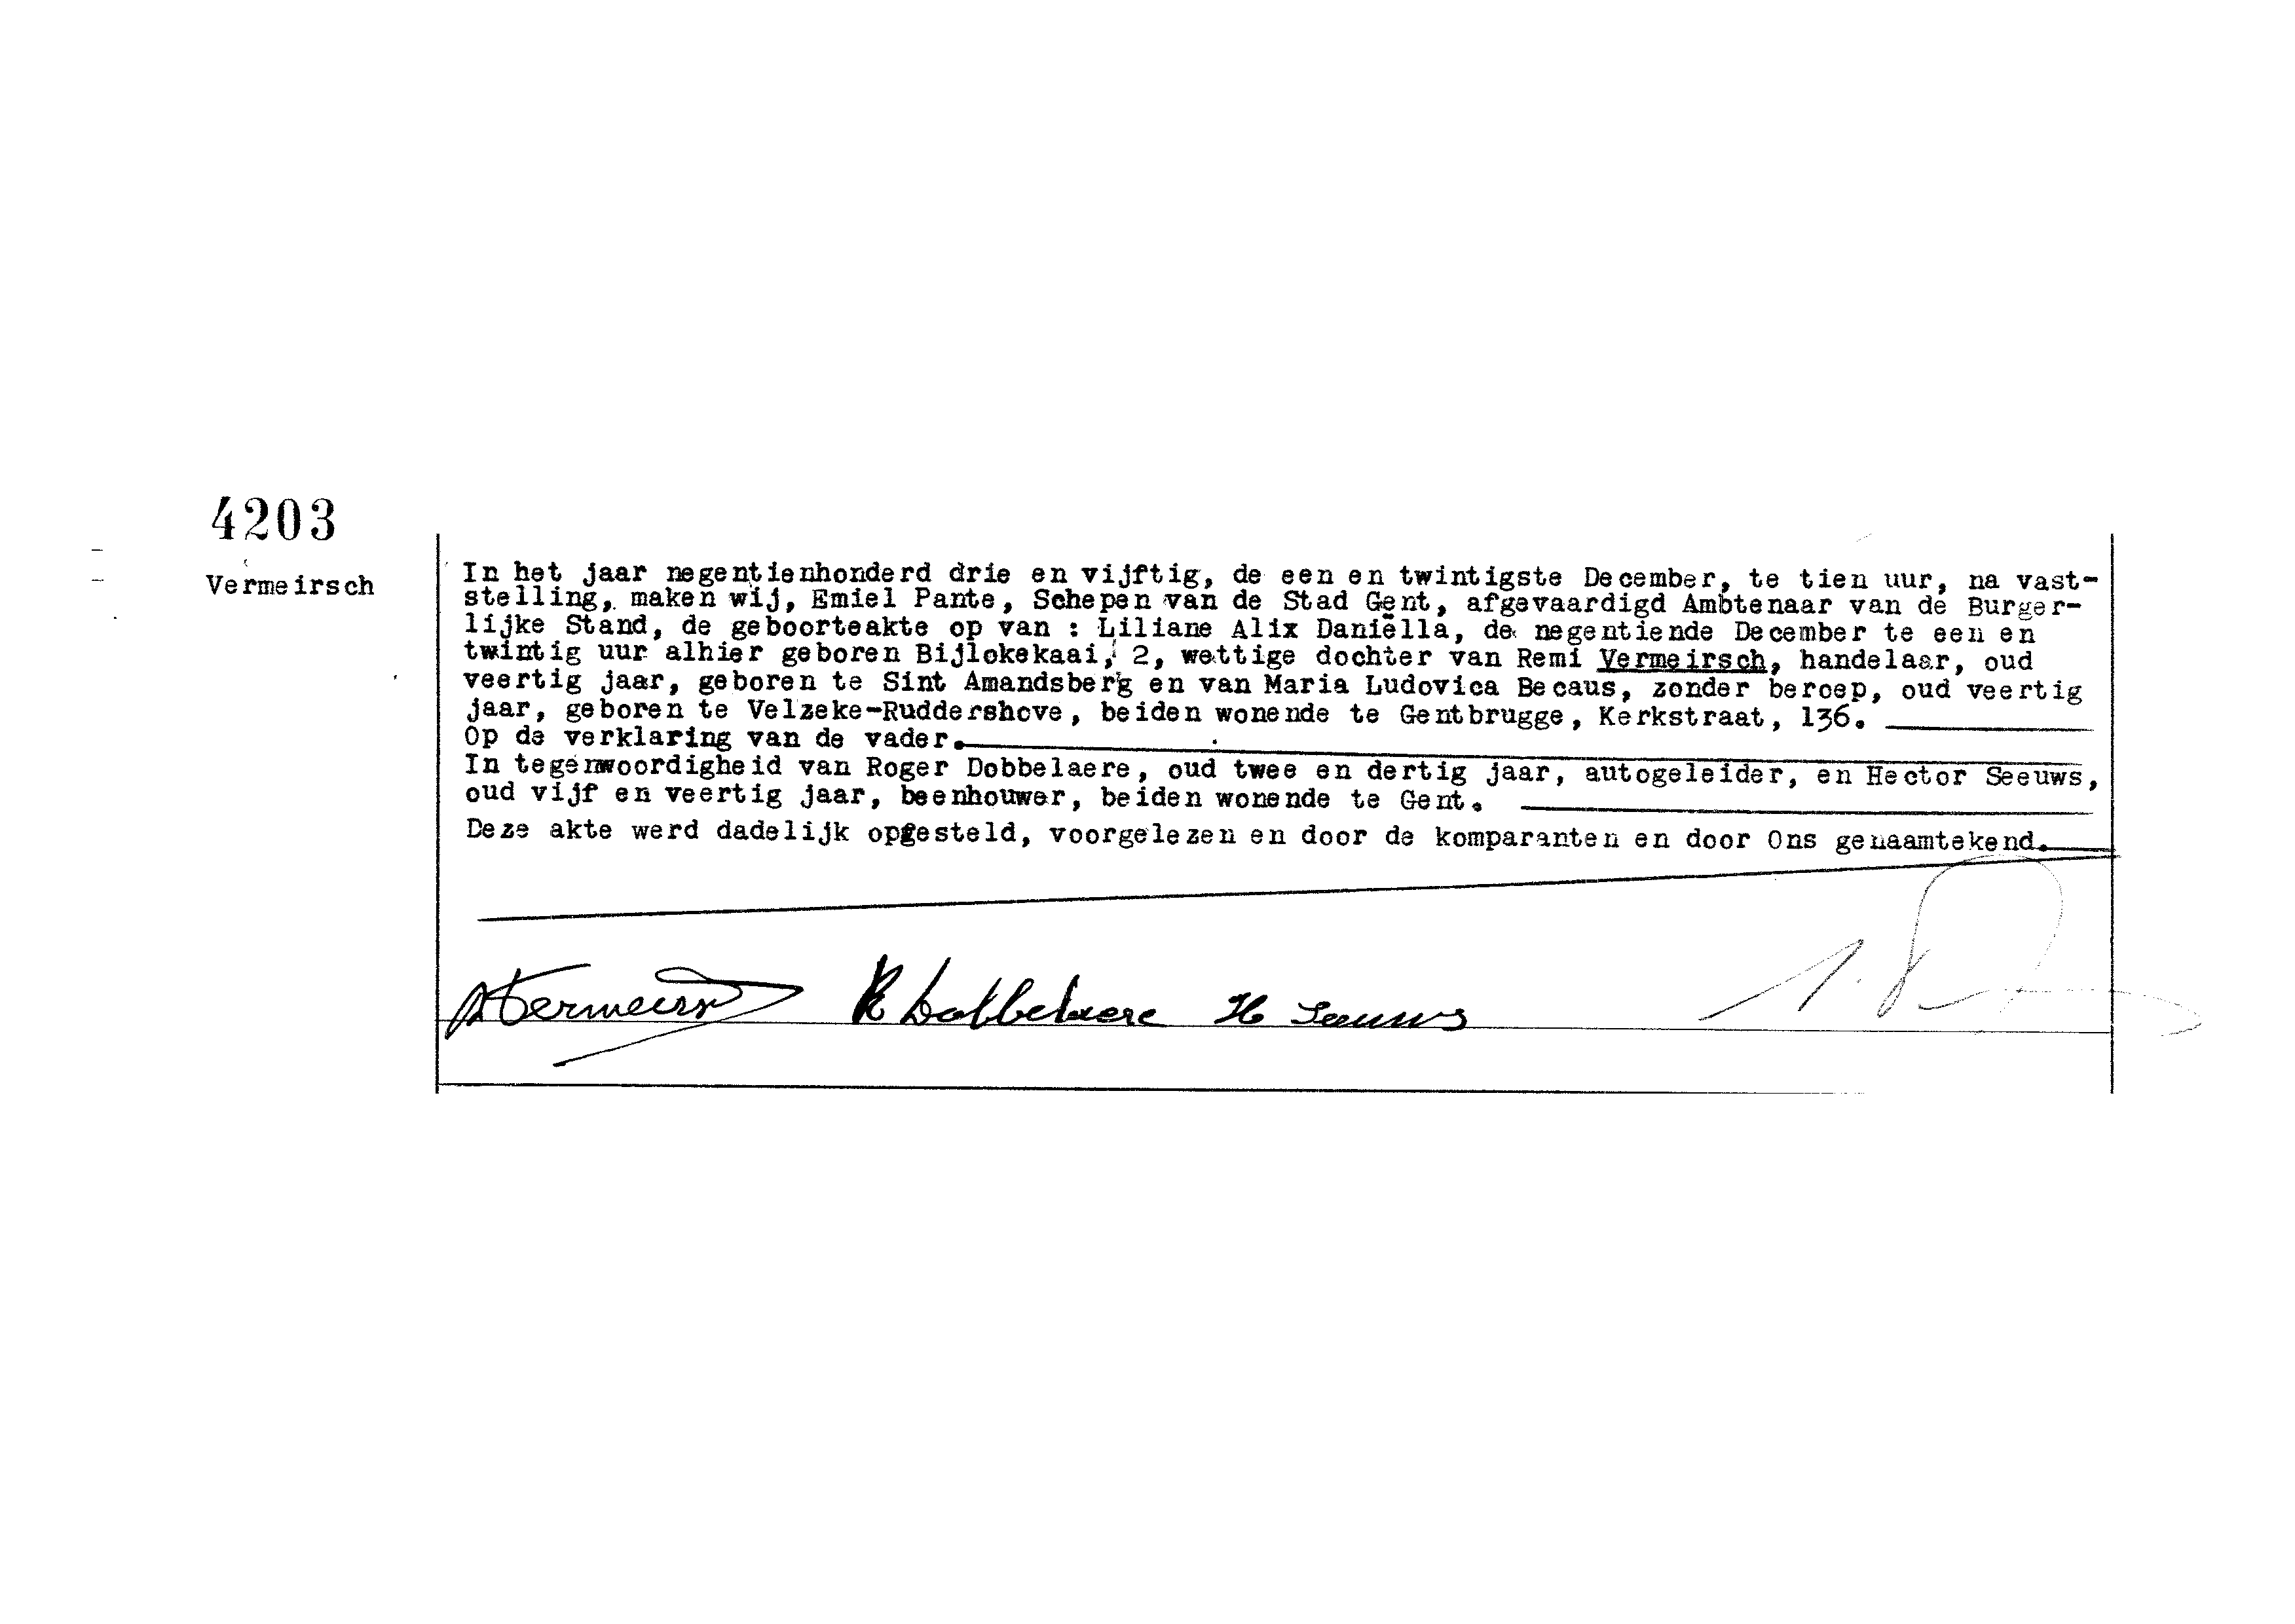 4203
Vermeirsch
In het jaar negentienhonderd drie en vijftig, de een en twintigste December, te tien uur, na vast-
stelling, maken wij, Emiel Pante, Schepen van de Stad Gent, afgevaardigd Ambtenaar van de Burger-
lijke Stand, de geboorteakte op van : Liliane Alix Daniëlla, de negentiende December te een en
twintig uur alhier geboren Bijlokekaai, 2, wettige dochter van Remi Vermeirsch, handelaar, oud
veertig jaar, geboren te Sint Amandsberg en van Maria Ludovica Becaus, zonder beroep, oud veertig
jaar, geboren te Velzeke-Ruddershove, beiden wonende te Gentbrugge, Kerkstraat, 136.
Op de verklaring van de vader.
In tegenwoordigheid van Roger Dobbelaere, oud twee en dertig jaar, autogeleider, en Hector Seeuws,
oud vijf en veertig jaar, beenhouwer, beiden wonende te Gent.
Deze akte werd dadelijk opgesteld, voorgelezen en door de komparanten en door Ons genaamtekend.
R Dobbelaere H Seeuws